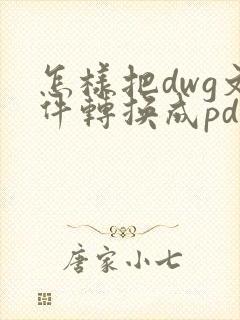 怎樣把dwg文
件轉換成pd
唐家小七